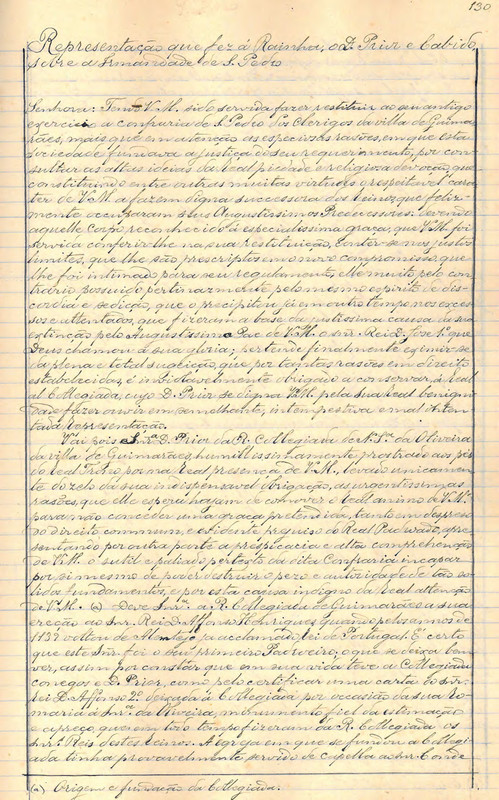 130
Representação que fez á Rainha, o D. Prior e Cabido,
sobre a Irmandade de S. Pedro
Senhora: Tem V. M. sido servida fazer restituir ao seu antigo
exercicio a confraria de S. Pedro dos Clerigos da villa de Guima-
rães, mais que em attenção as especiosas rasões, em que esta
sociedade fundava a justiça do seu requerimento, por con-
sultar as altas ideias da Real piedade e religiosa devoção, que
constituindo entre outras muitas virtudes o respeitavel cara-
ter de V. M. a fazem digna successora dos Reinos, que feliz-
mente occuparam seus Augustissimos Predecessores: devendo
aquelle Corpo reconhecido á especialissima graça, que V. M. foi
servida conferir-lhe na sua restituição, conter-se nos justos
limites, que lhe são prescriptos em o novo compromisso que
lhe foi intimado para seu regulamento, elle muito pelo con-
trario possuido pertinazmente pelo mesmo espirito de dis-
cordia e sedição, que o precipitou já em outro tempo nos exces-
sos e attentados, que fizeram a base da justissima causa da sua
extinção pelo Augustissimo Pae de V. M. o Snr. Rei D. José 1º que
Deus chamou á sua gloria; pertende finalmente eximir-se
da plena e total sugeição, que por tantas rasões em direito
estabelecidas, é inviolavelmente obrigado a conservar, á Real
Collegiada, cujo D. Prior se digna V. M. pela sua Real benigni-
dade fazer ouvir em semelhante, intempestiva e mal atten-
tada representação.
Vem pois Snr.ª D. Prior da R. Collegiada de N. S.ª da Oliveira
da villa de Guimarães, humillissimamente prostrado aos pés
do Real Trono, por na Real presença de V. M., levado unicamente
do zelo da sua indispensavel obrigação, as urgentissimas
rasões, que elle espera hajam de comover o Real animo de V. M.
para não conceder uma graça pretendida, tanto em despreso
do Direito commum, e evidente prejuiso do Real Padroado, apre-
sentando por outra parte á prespicacia e alta comprehenção
de V. M. o subtil e paliado pertexto da dita Confraria incapaz
por si mesmo de poder destruir o pezo e autoridade de tão so-
lidos fundamentos, e por esta causa indigno da Real attenção
de V. M. (a) Deve Snr.ª a R. Collegiada de Guimarães a sua
ereção ao Snr. Rei D. Affonso Henriques, quando pelos annos de
1139 voltou de já acclamado rei de Portugal. É certo
que este Snr. foi o seu primeiro Padroeiro, o que se deixa bem
ver, assim por constar que em sua vida teve a Collegiada
conegos e D. Prior, como pelo certificar uma carta do Snr.
rei D. Affonso 2º deixada á Collegiada por occasião da sua Ro-
maria á Snr.ª da Oliveira, monumento fiel da estimação
e apreço, que em todo tempo fizeram da R. Collegiada os
Snr.s Reis destes reinos. A egreja em que se fundou a Collegi-
ada tinha provavelmente servido de capella ao Snr. Conde
(a) Origem e fundação da Collegiada.